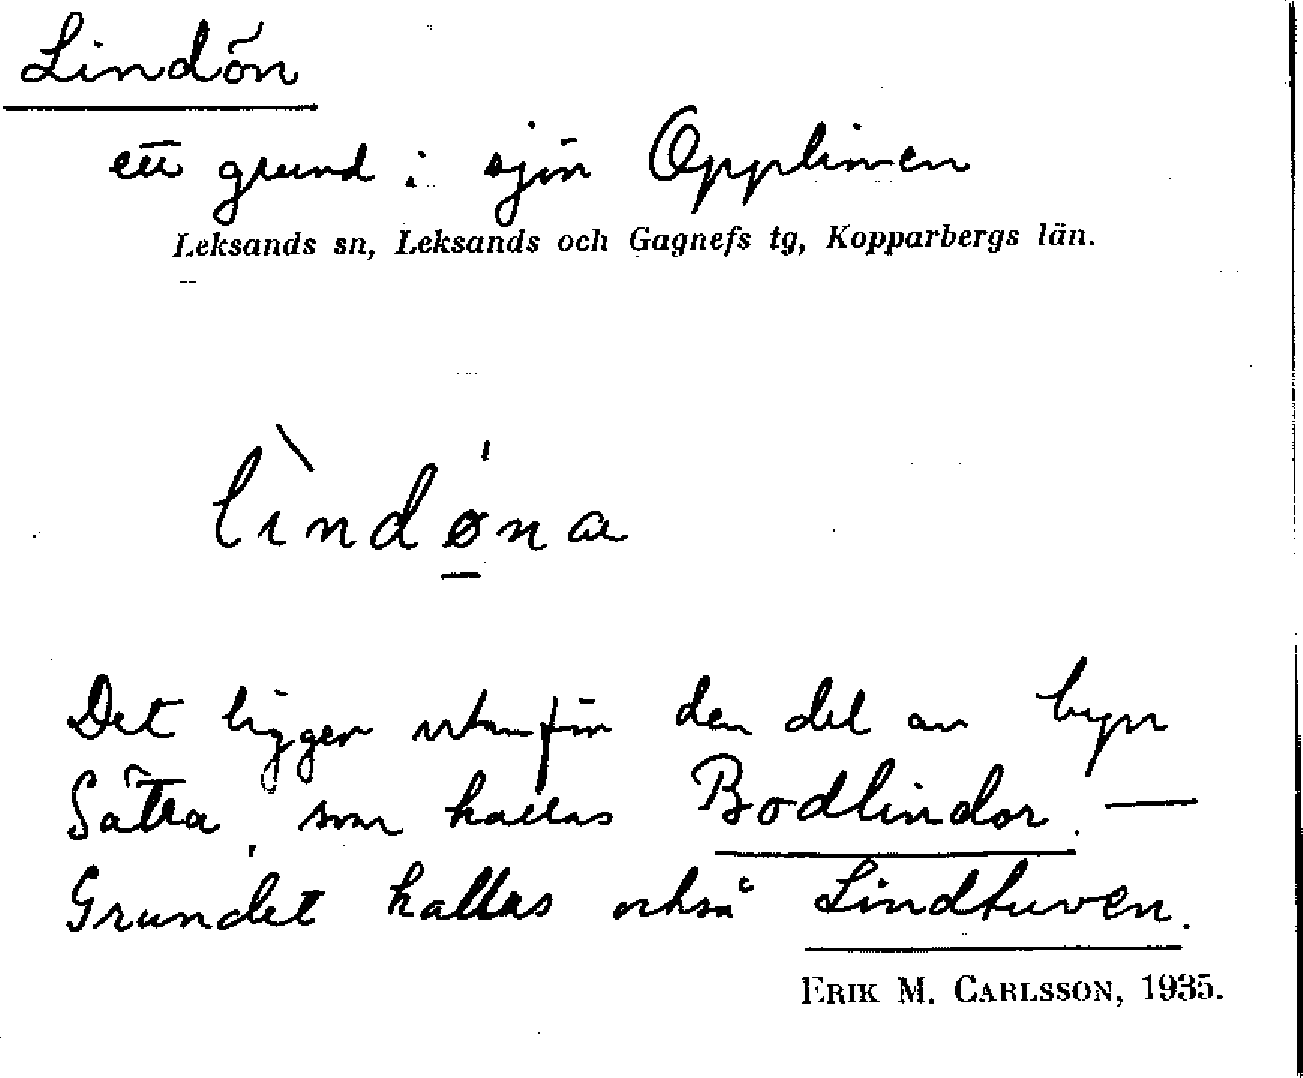 Lindön
ett grund i sjön Opplimen
Leksands sn, Leksands och Gagnefs tg, Kopparbergs län.
lìndǿ̱na
Det ligger utanför den del av byn
Sätra, som kallas Bodlindor. —
Grundet kallas också Lindtuven.
ERIK M. CARLSSON, 1935.